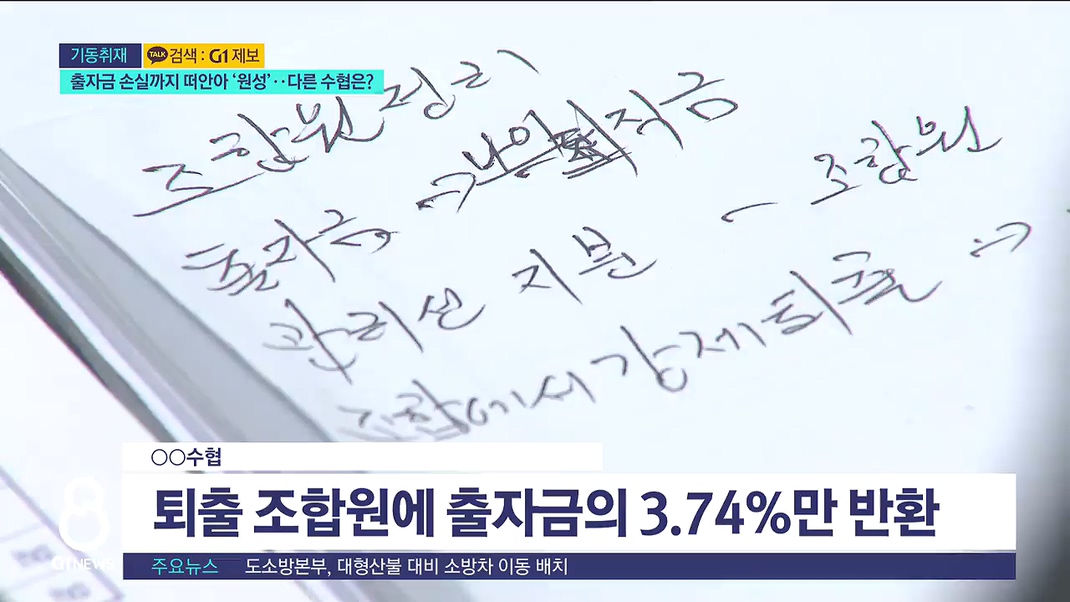 기동취재 TALK 검색 : G1 제보
출자금 손실까지 떠안아 '원성'‥다른 수협은?
조합원정리
출자금 → 적금
관리선 지분 - 조합원
조합에서 강제퇴출 →
○○수협
퇴출 조합원에 출자금의 3.74%만 반환
8
G1NEWS
주요뉴스 도소방본부, 대형산불 대비 소방차 이동 배치